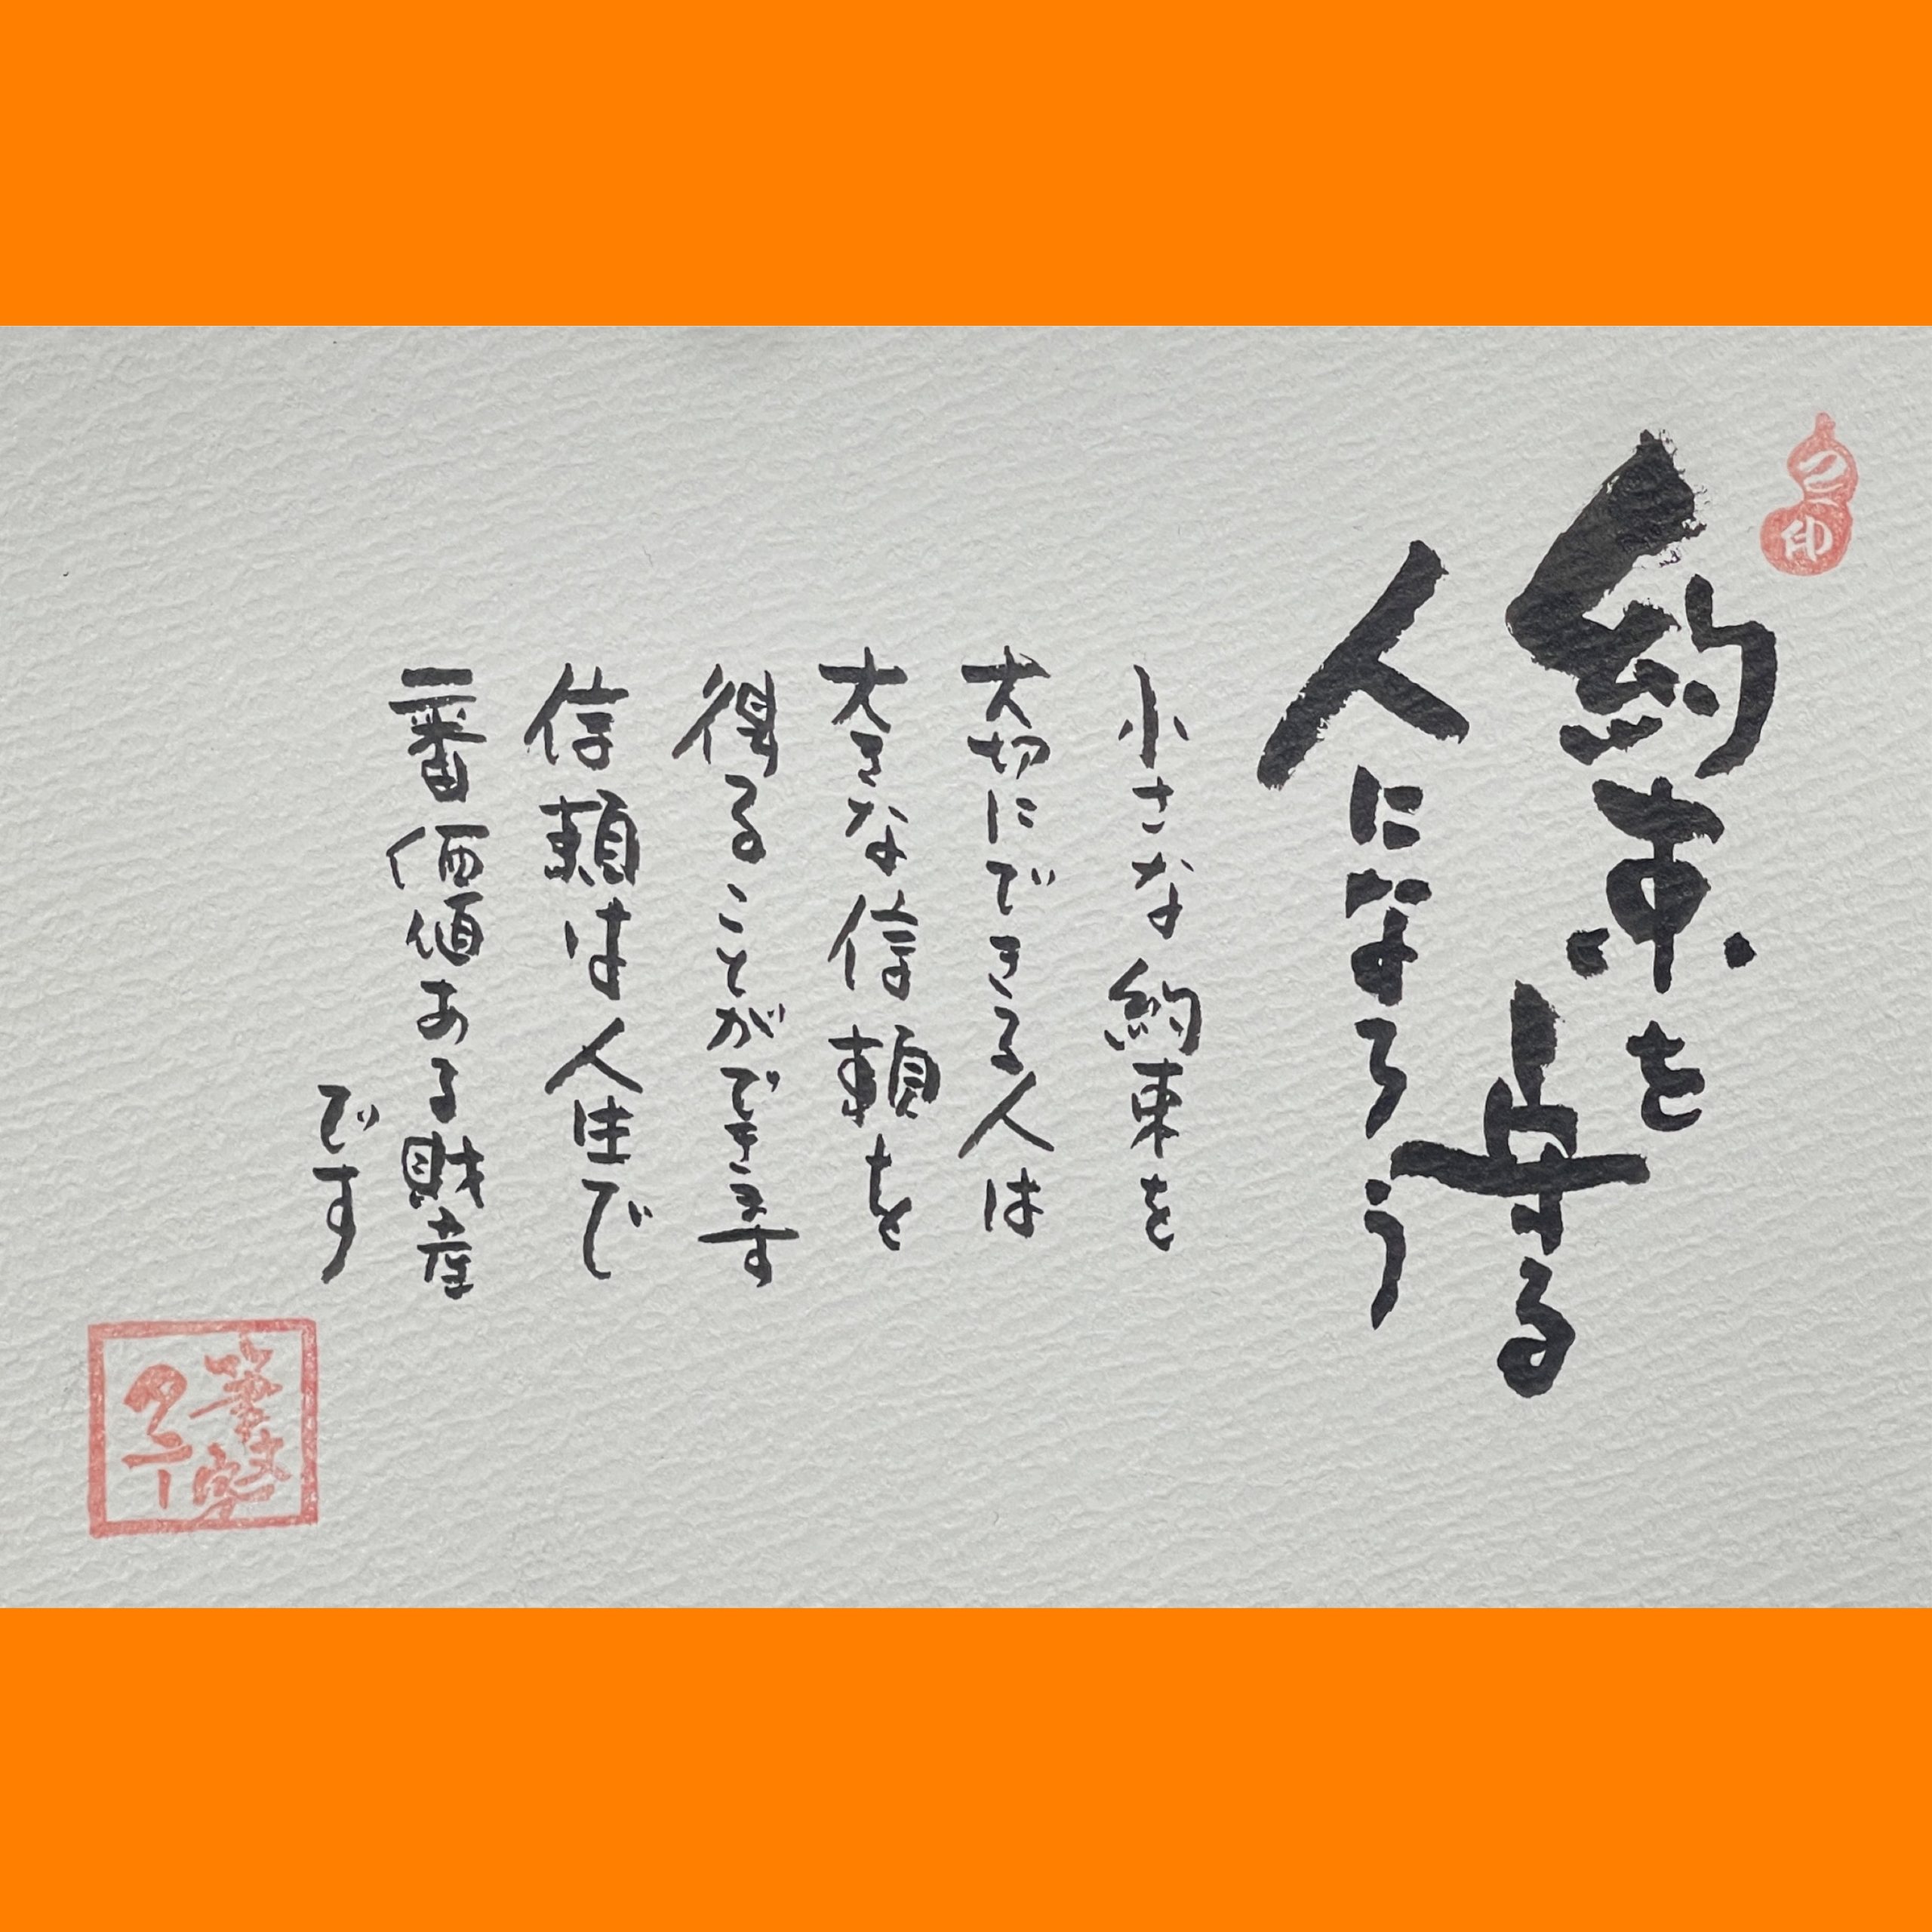 約束を
守る
人になろう
小さな約束を
大切にできる人は
大きな信頼を
得ることができます
信頼は人生で
一番価値ある財産
です
印
筆文字